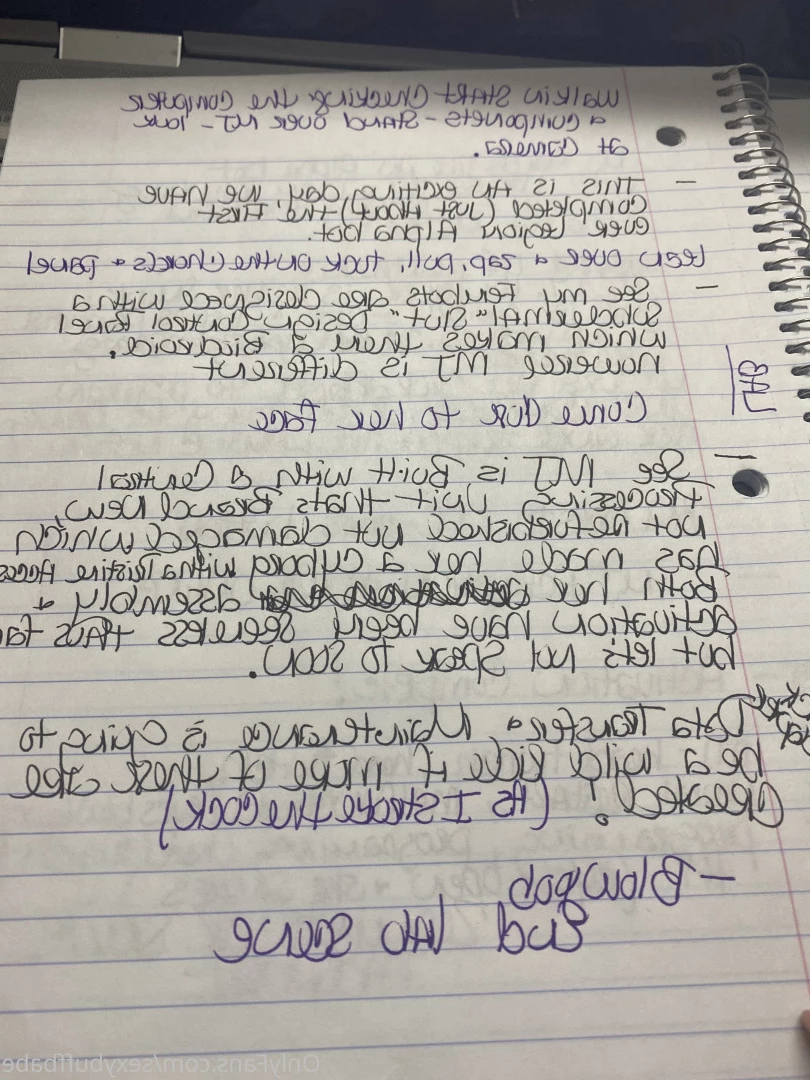 Walk in START Checking the Computers
& components - Stand over MJ - look
at camera.
- THIS is AN exciting day, we have
completed (Just About) the first
ever legion Alpha bot.
lean over & zap, pull, tuck on the Chords & panel
- See my Fembots are designed with a
Subdermal "Slut" Design control panel
which makes them a
however MJ is different
LAB
Come down to her face
- See MJ is Built with a Central
Processing Unit thats Brand new,
not refurbished nut damaged which
has made her a cyborg with a Pristine Access
Both her assembly &
activation have been seemless thus far
but lets not speak to soon.
Data Transfer & Maintenance is going to
be a wild Ride if more of these are
Created! (AS I stroke the COCK)
- Blowbop
End LAB scene
OnlyFans.com/sexybuffbabe